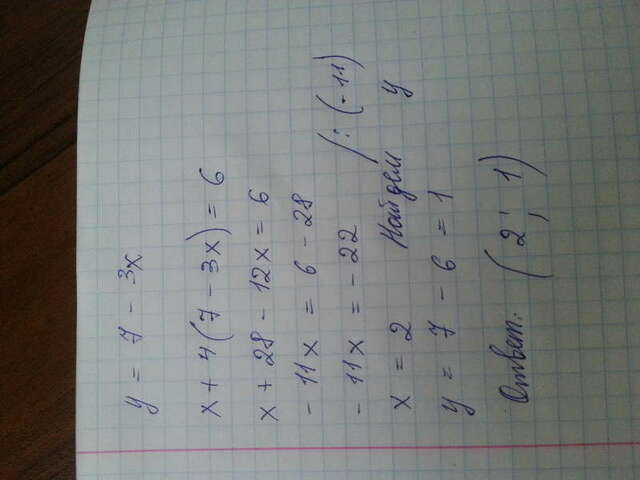 y = 7 - 3x
x + 4(7 - 3x) = 6
x + 28 - 12x = 6
- 11x = 6 - 28
- 11x = - 22 /: (-11)
x = 2 Найдем y
y = 7 - 6 = 1
Ответ: (2; 1)